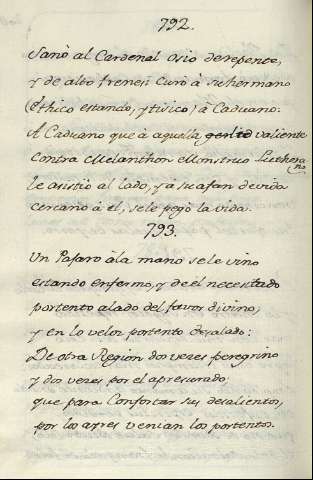 792.
Sanò al Cardenal Osio derepente,
y de alto frenesi Curò à su hermano
(Ethico estando, y tisico) à Caduano.
A Caduano que à aquella valiente
Contra Melanthon Monstruo Luthera
no
le asistio al lado, y à su afan de vida
cercano à el, se le pegò la vida.
793.
Un Pajaro àla mano sele vino
estando enfermo, y de èl necesitado
portento alado del favor divino,
y en lo velos portento desalado:
De otra Region dos veses peregrino
y dos veses por el apresurado;
que para Confortar sus desalientos,
por los ayres venian los portentos.